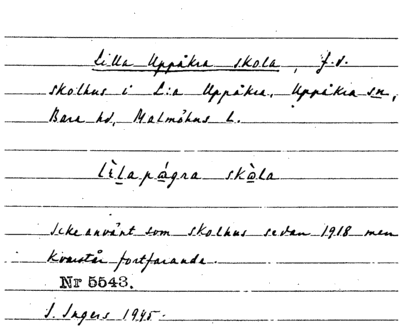 Lilla Uppåkra skola, f.d.
skolhus i L:a Uppåkra, Uppåkra sn,
Bara hd, Malmöhus L.
lèlapágra skòla
Icke använt som skolhus sedan 1918 men
kvarstår fortfarande.
Nr 5543.
I. Ingers 1945.